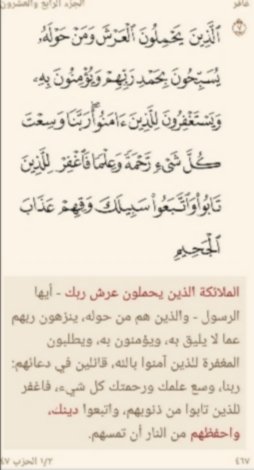 غافر
الجزء الرابع والعشرون
٧
ٱلَّذِينَ يَحْمِلُونَ ٱلْعَرْشَ وَمَنْ حَوْلَهُۥ
يُسَبِّحُونَ بِحَمْدِ رَبِّهِمْ وَيُؤْمِنُونَ بِهِۦ
وَيَسْتَغْفِرُونَ لِلَّذِينَ ءَامَنُوا۟ۖ رَبَّنَا وَسِعْتَ
كُلَّ شَىْءٍ رَّحْمَةً وَعِلْمًا فَٱغْفِرْ لِلَّذِينَ
تَابُوا۟ وَٱتَّبَعُوا۟ سَبِيلَكَ وَقِهِمْ عَذَابَ
ٱلْجَحِيمِ
الملائكة الذين يحملون عرش ربك - أيها
الرسول - والذين هم من حوله، ينزهون ربهم
عما لا يليق به، ويؤمنون به، ويطلبون
المغفرة للذين آمنوا بالله، قائلين في دعائهم:
ربنا، وسع علمك ورحمتك كل شيء، فاغفر
للذين تابوا من ذنوبهم، واتبعوا دينك،
واحفظهم من النار أن تمسهم.
٤٦٧
١/٢ الحزب ٤٧